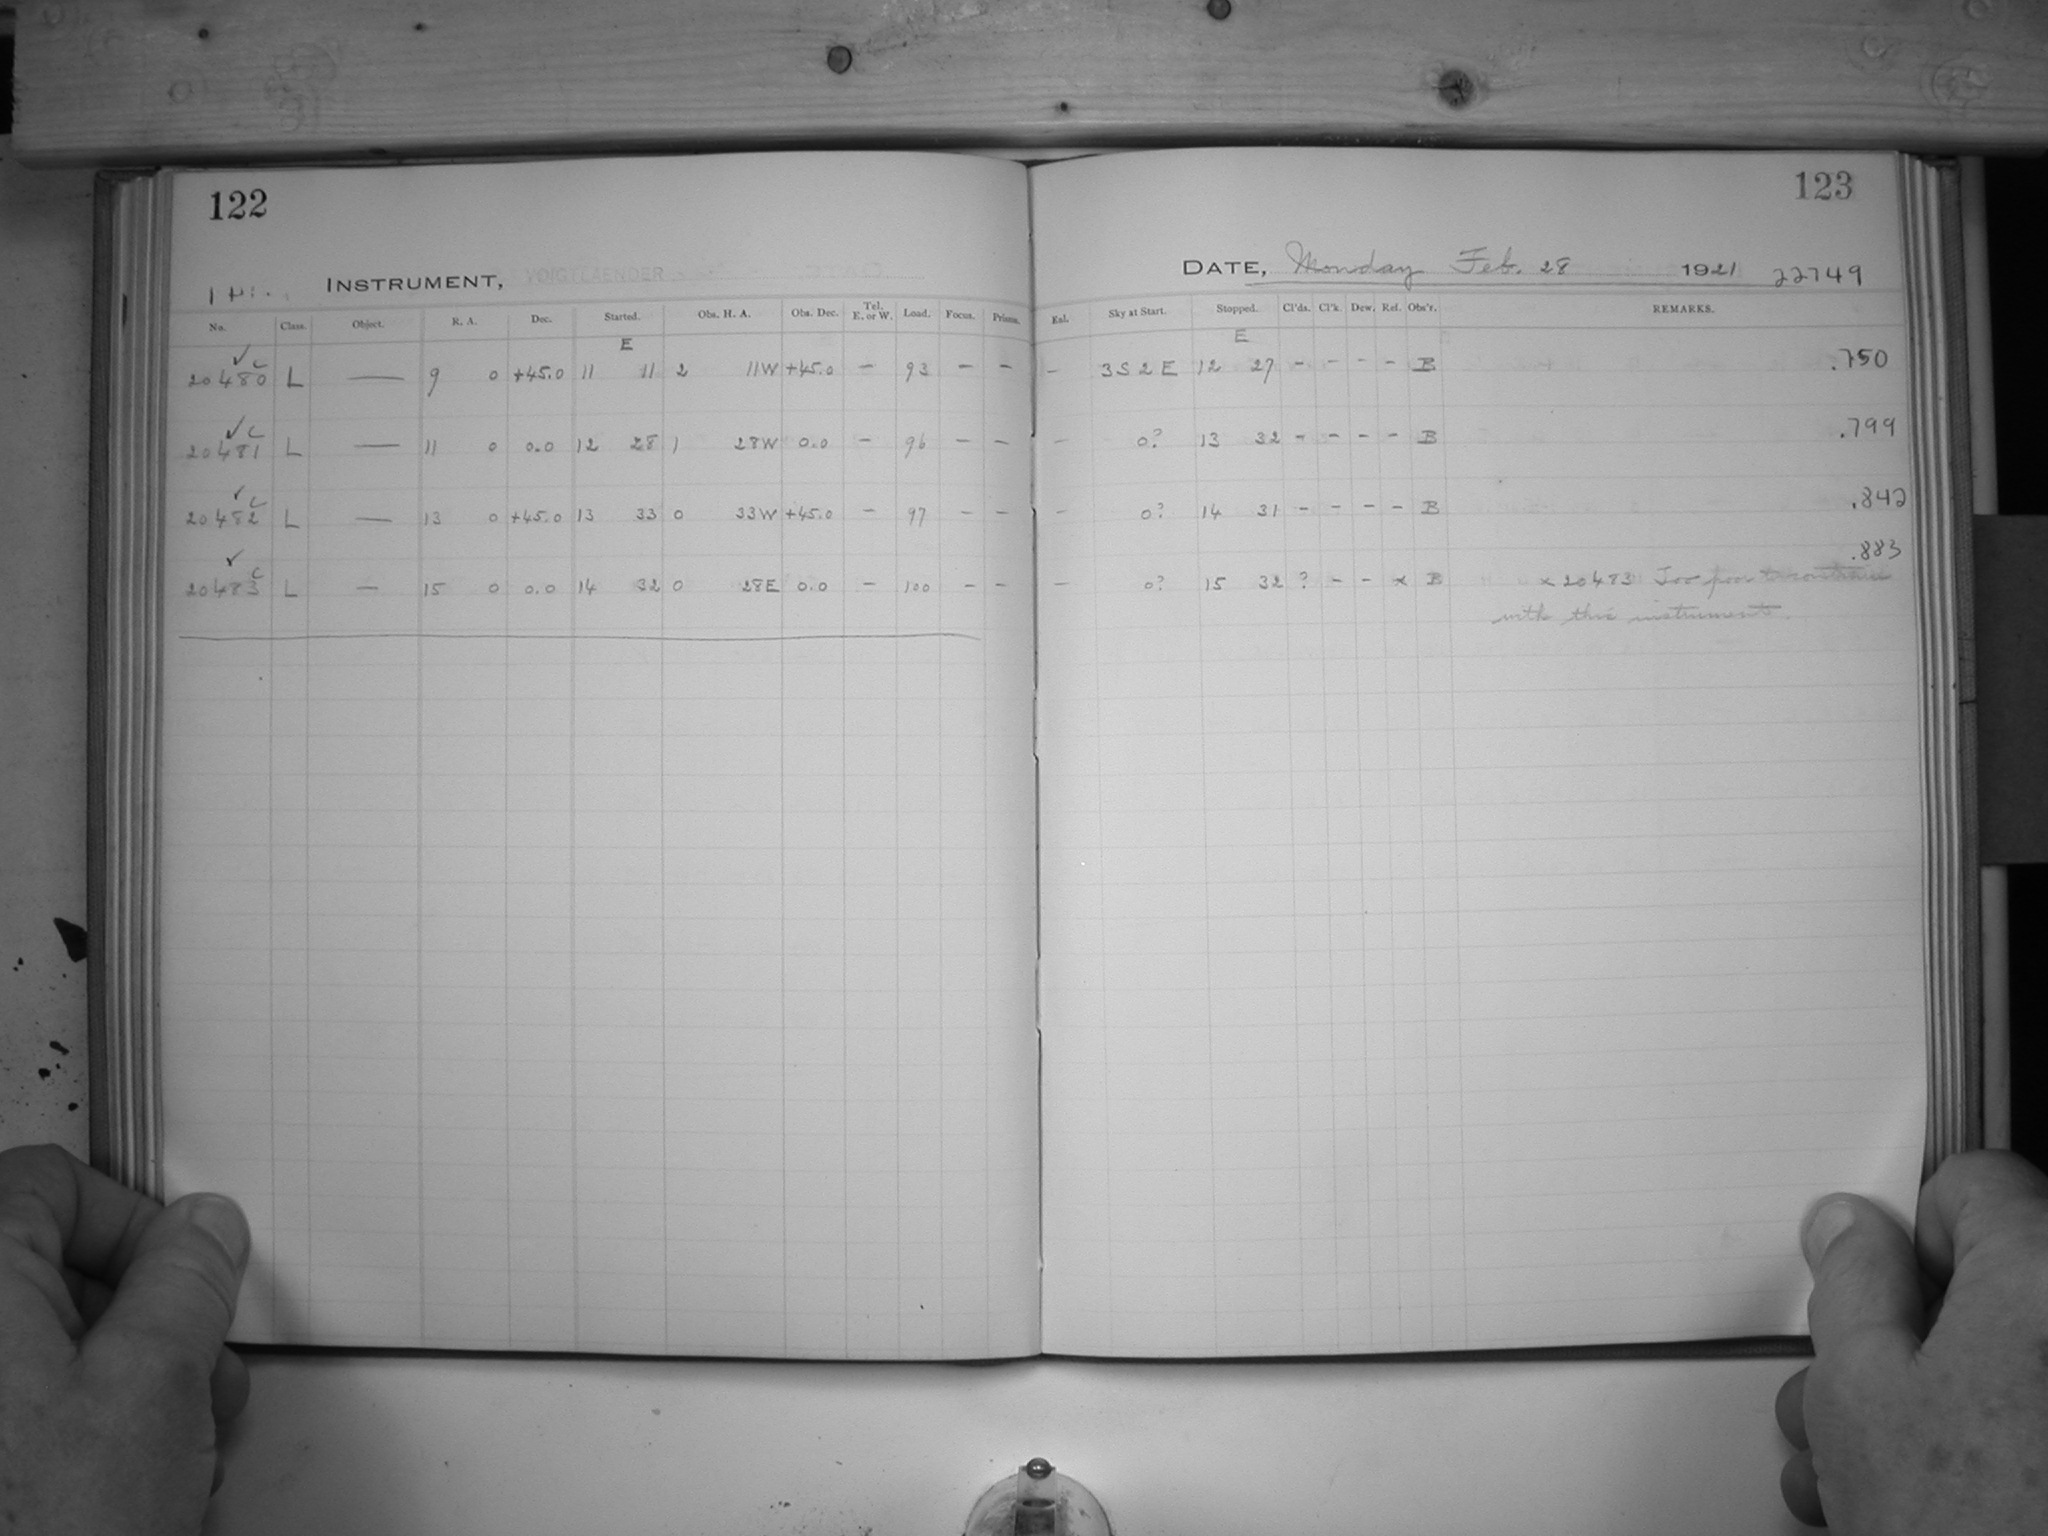 122
INSTRUMENT, VOIGTLAENDER
No. Class. Object. R. A. Dec. Started. Obs. H. A. Obs. Dec. Tel. E. or W. Load. Focus. Prisms.
E
✓ c
20480 L — 9 0 +45.0 11 11 2 11W +45.0 - 93 - -
✓ c
20481 L — 11 0 0.0 12 28 1 28W 0.0 - 96 - -
✓ c
20482 L — 13 0 +45.0 13 33 0 33W +45.0 - 97 - -
✓ c
20483 L — 15 0 0.0 14 32 0 28E 0.0 - 100 - -
123
DATE, Monday Feb. 28 1921 22749
Enl. Sky at Start. Stopped. Cl'ds. Cl'k. Dew. Ref. Obs'r. REMARKS.
E
- 3S2E 12 27 - - - - B .750
- 0? 13 32 - - - - B .799
- 0? 14 31 - - - - B .842
.883
- 0? 15 32 ? - - x B x 20483 Too poor to continue
with this instrument.